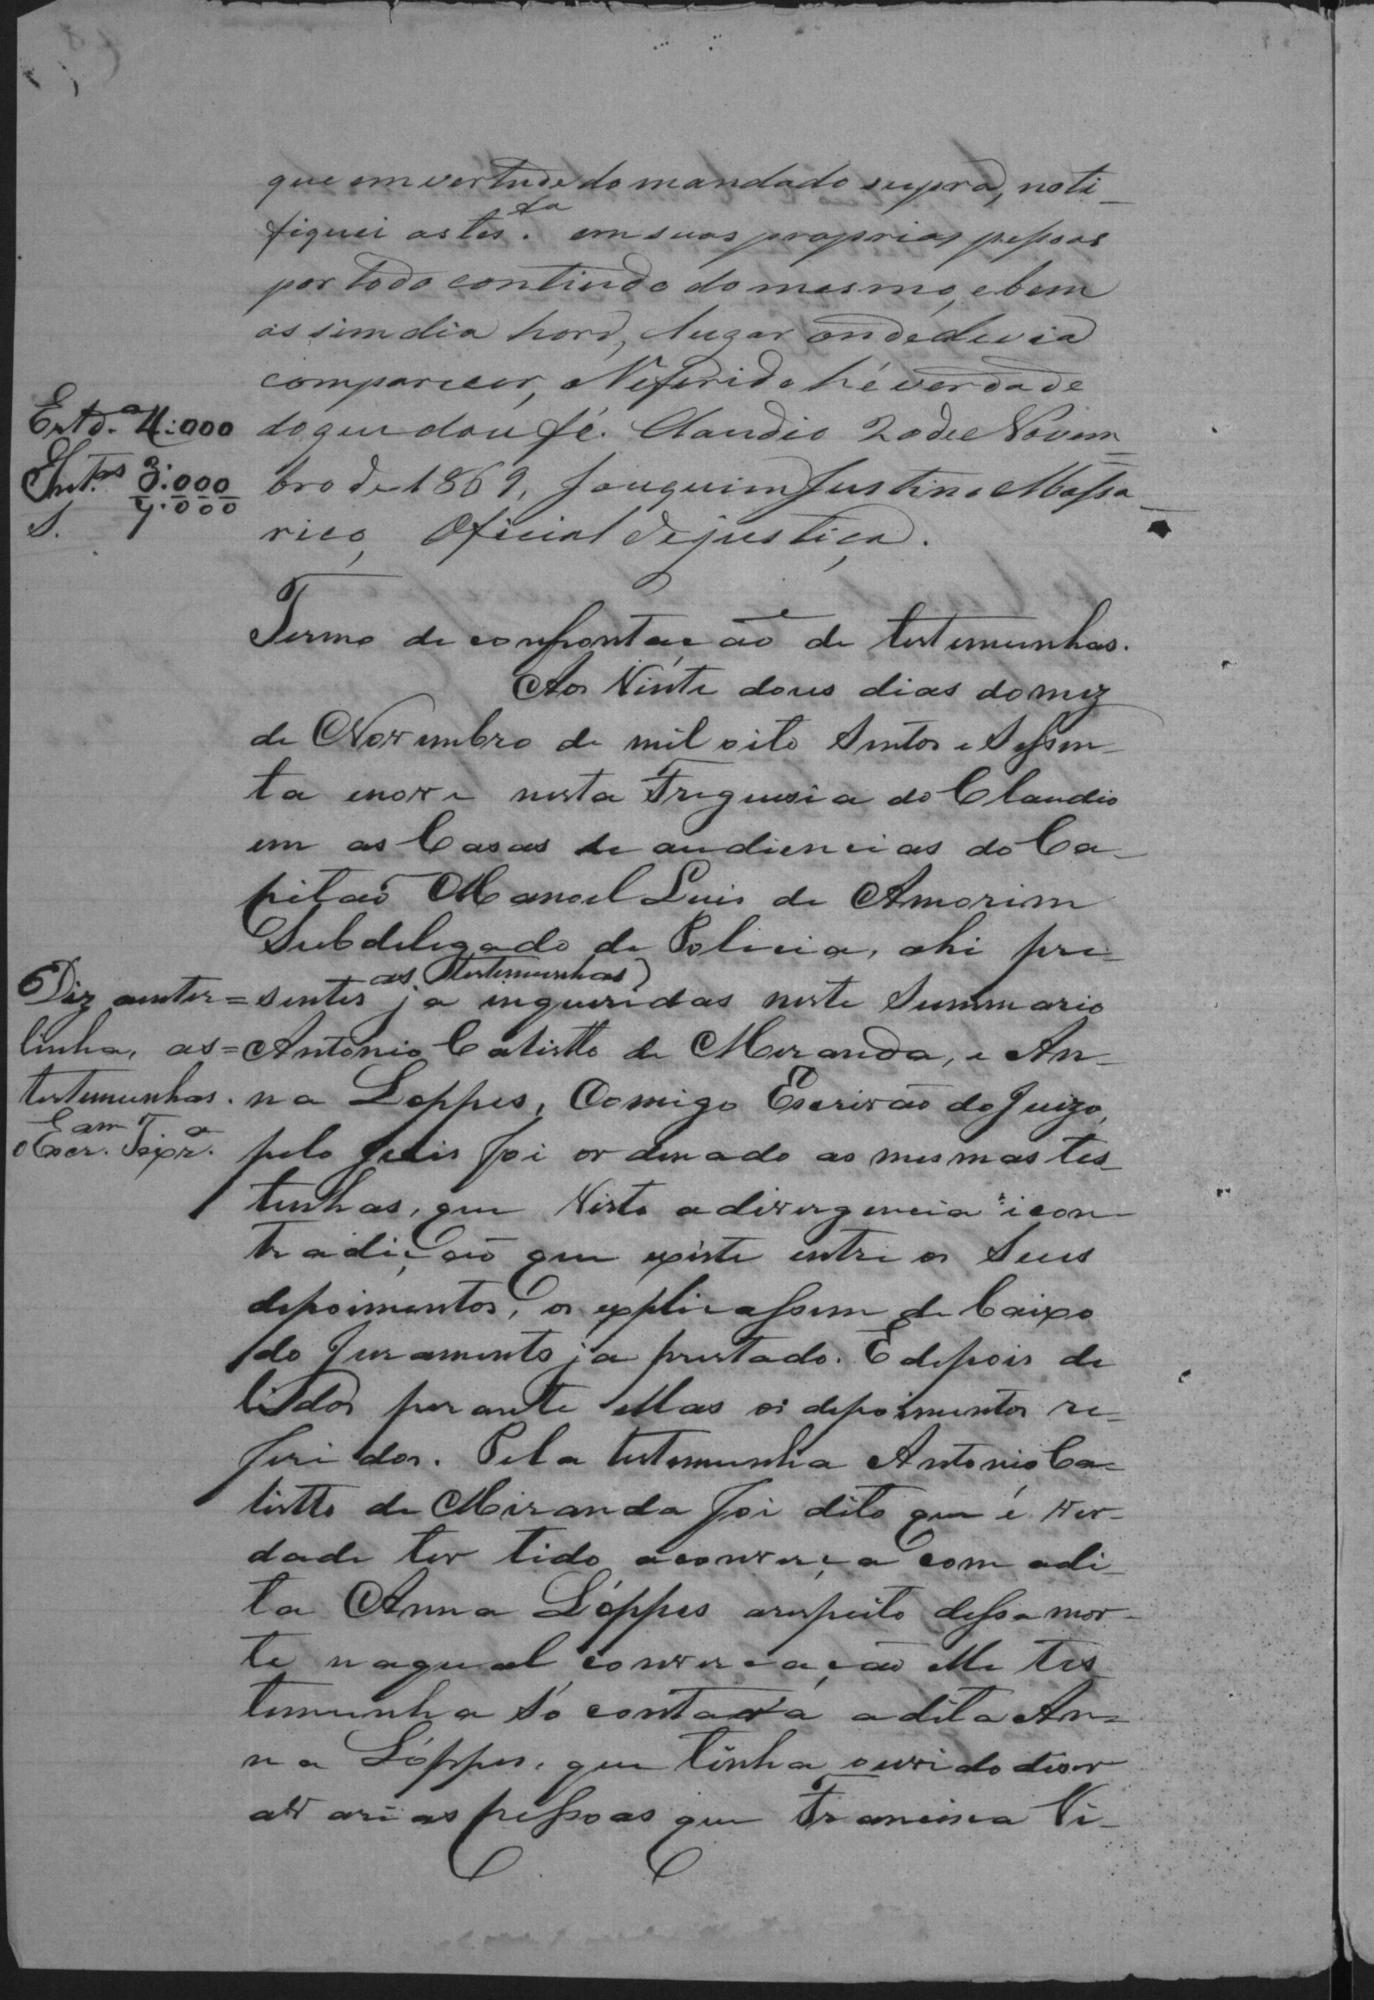 que em vertude do mandado supra, noti_
fiquei as tes.ta em suas proprias pessoas
por todo contiudo do mesmo, e bem
as sim dia hora, lugar onde devia
comparecer, o Referido hé verdade
do que dou fé. Claudio 20 de Novem=
bro de 1869, Joaquim Justino Massa_
rico, Oficial de justiça.
Estd.a 4:000
3:000
S. 7:000
Termo de confrontação de testemunhas.
Aos Vinte dous dias do mez
de Novembro de mil oito Sentos e Sessen_
ta enove nesta Freguesia do Claudio
em as Casas de audiencias do Ca_
pitaõ Manoel Luis de Amorim
Subdelegado de Policia, ahi pre_
as testemunhas
sentes ja inqueridas neste Summario
Antonio Calistto de Meranda, e An_
na Loppes, Comigo Escrivaõ do Juizo,
pelo Juis foi ordenado as mesmas tes_
tunhas, que Visto a divergencia i con_
tradiçaõ que existe entre os Seus
depoimentos, os explicassem de baixo
do Juramento ja prestado. E depois de
lidos perante ellas os depoimentos re_
feridos. Pela testemunha Antonio Ca=
listto de Miranda foi dito que é ver_
dade ter tido aconverça com adi_
ta Anna Lóppes arespeito dessa mor_
te naqual convercaçaõ elle tes_
temunha só contava adita An=
na Lóppes, que tinha ouvido diser
avarias pessoas que Francisca Vi_
Diz aenter=
linha, as=
testemunhas.
Eam
o Escr. Teixr.a